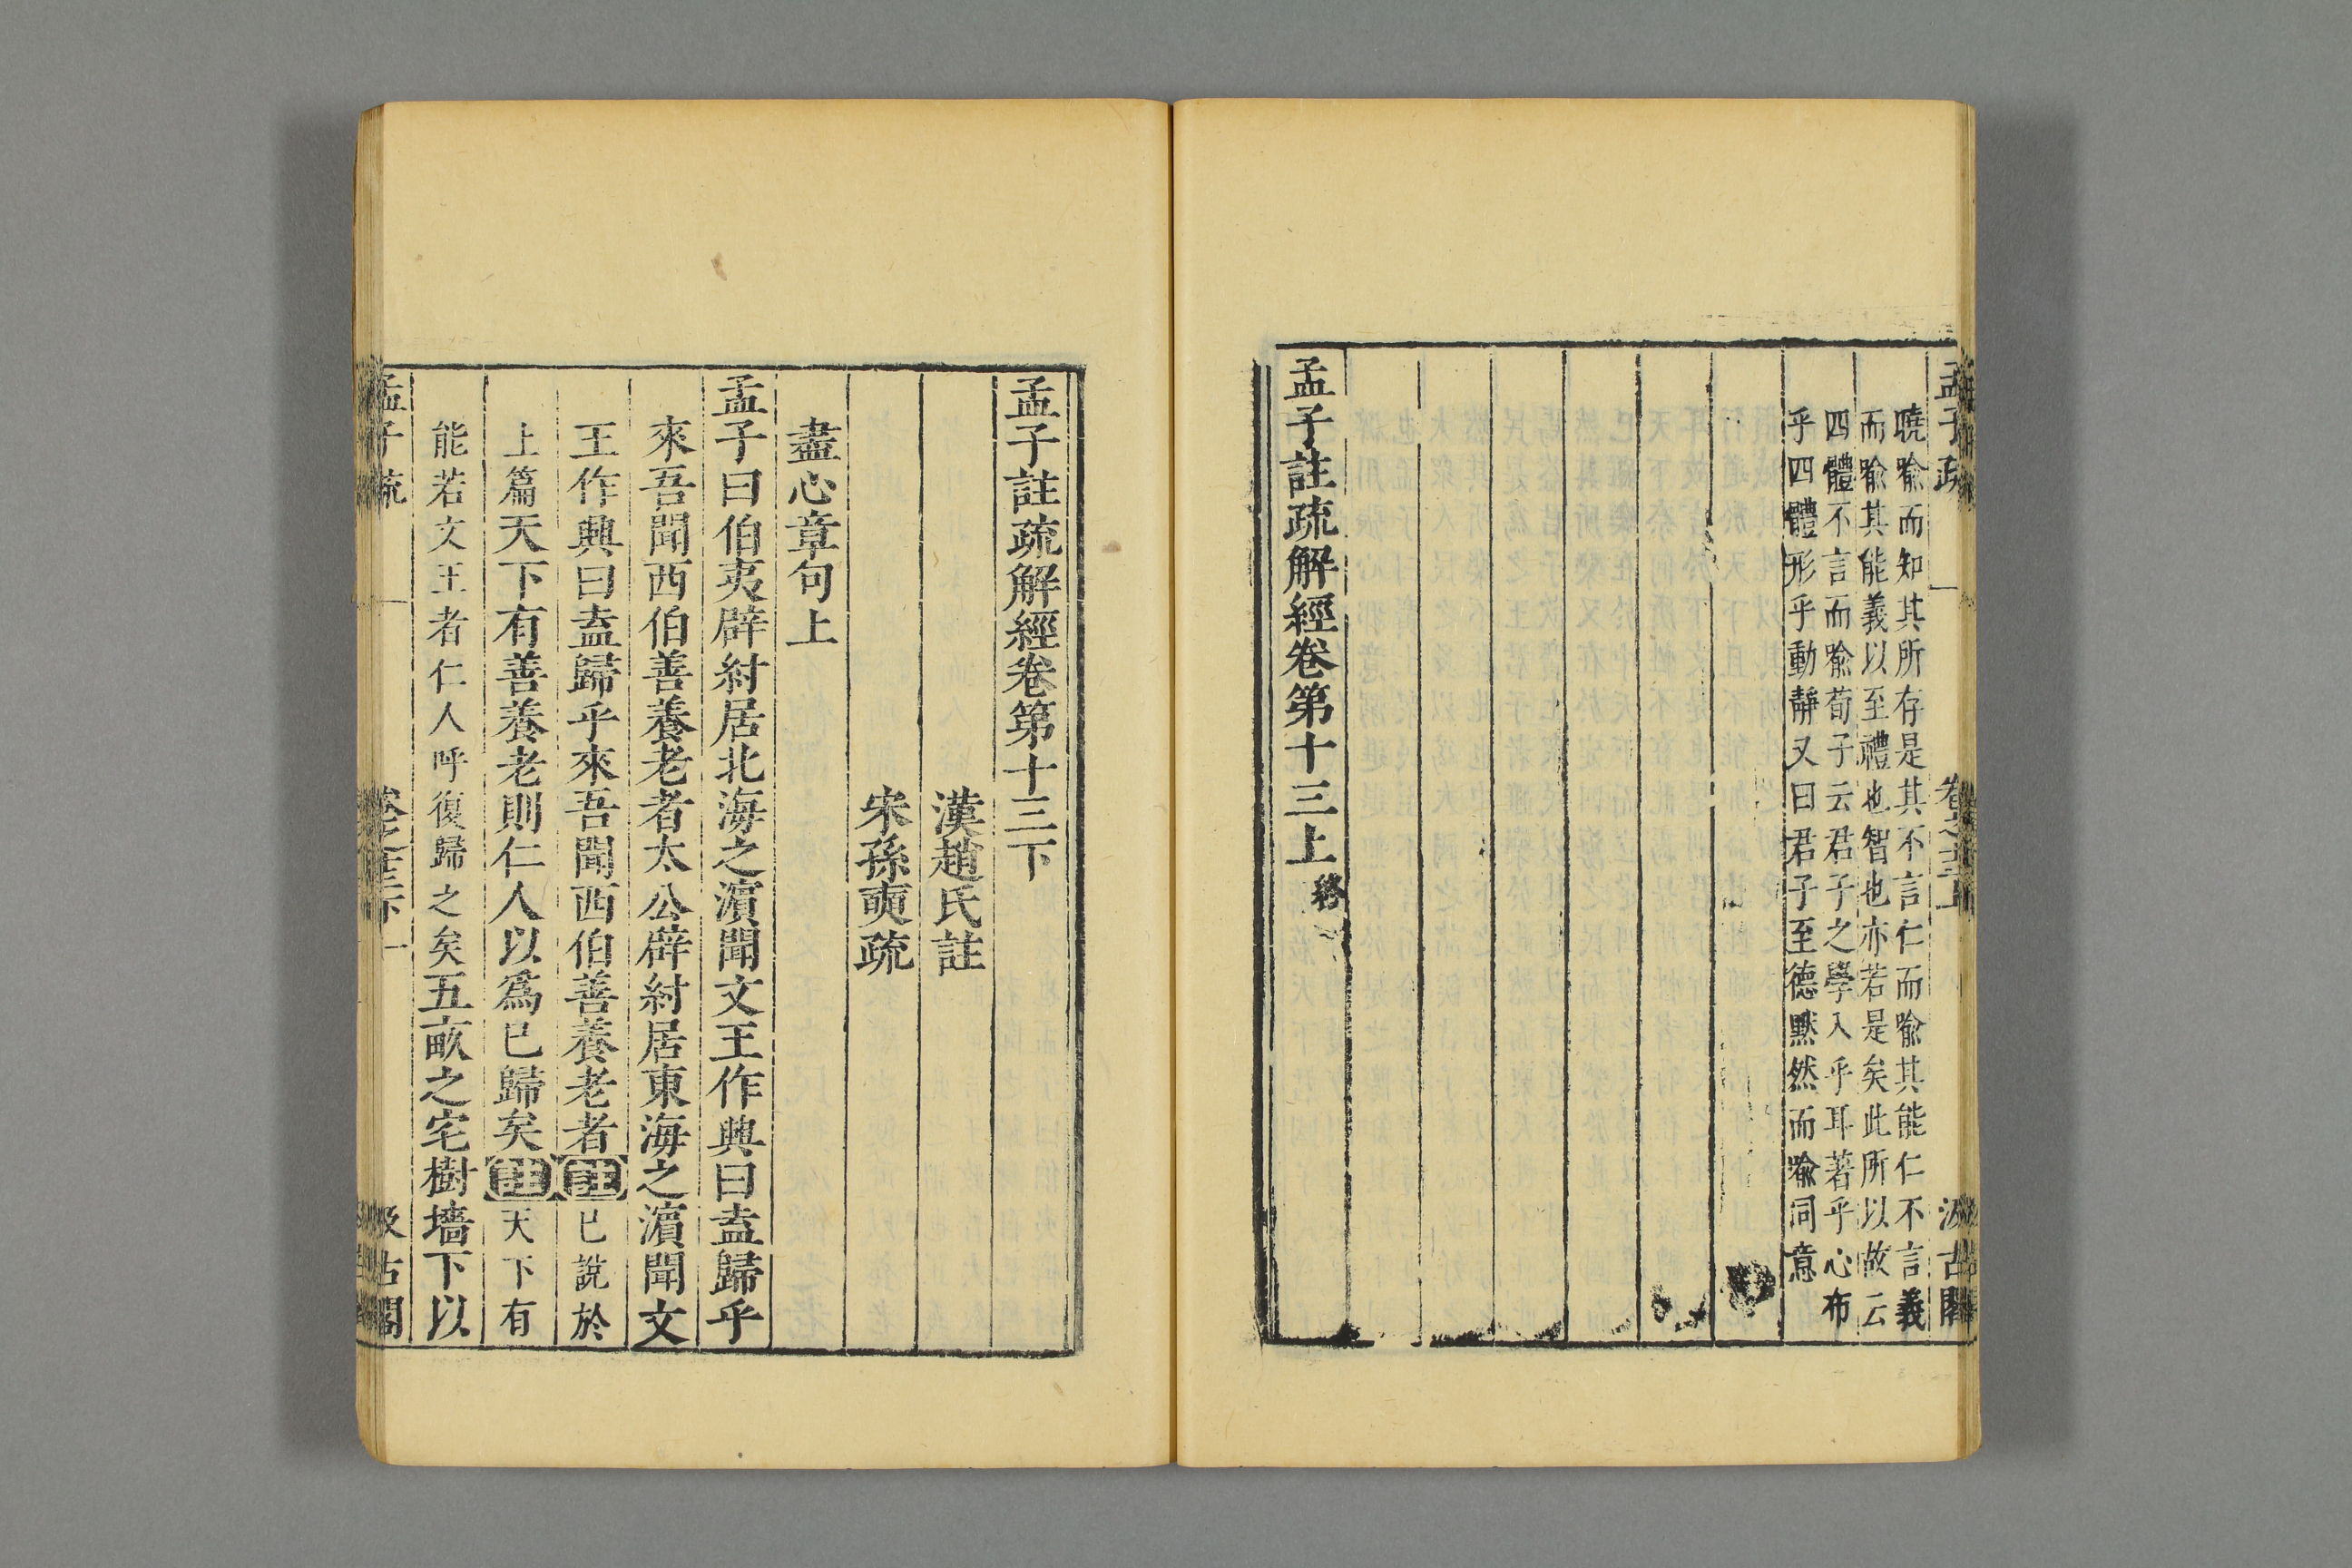 孟子疏
卷之十三上
汲古閣
曉喻而知其所存是其不言仁而喻其能仁不言義
而喻其能義以至禮也智也亦若是矣此所以故云
四體不言而喻荀子云君子之學入乎耳著乎心布
乎四體形乎動靜又曰君子至德黙然而喻同意
孟子註疏解經卷第十三上 終
孟子註疏解經卷第十三下
漢趙氏註
宋孫奭疏
盡心章句上
孟子曰伯夷辟紂居北海之濵聞文王作興曰盍歸乎
來吾聞西伯善養老者太公辟紂居東海之濵聞文
王作興曰盍歸乎來吾聞西伯善養老者註已說於
上篇天下有善養老則仁人以爲已歸矣註天下有
能若文王者仁人呼復歸之矣五畝之宅樹墻下以
孟子疏
卷之十三下
一
汲古閣